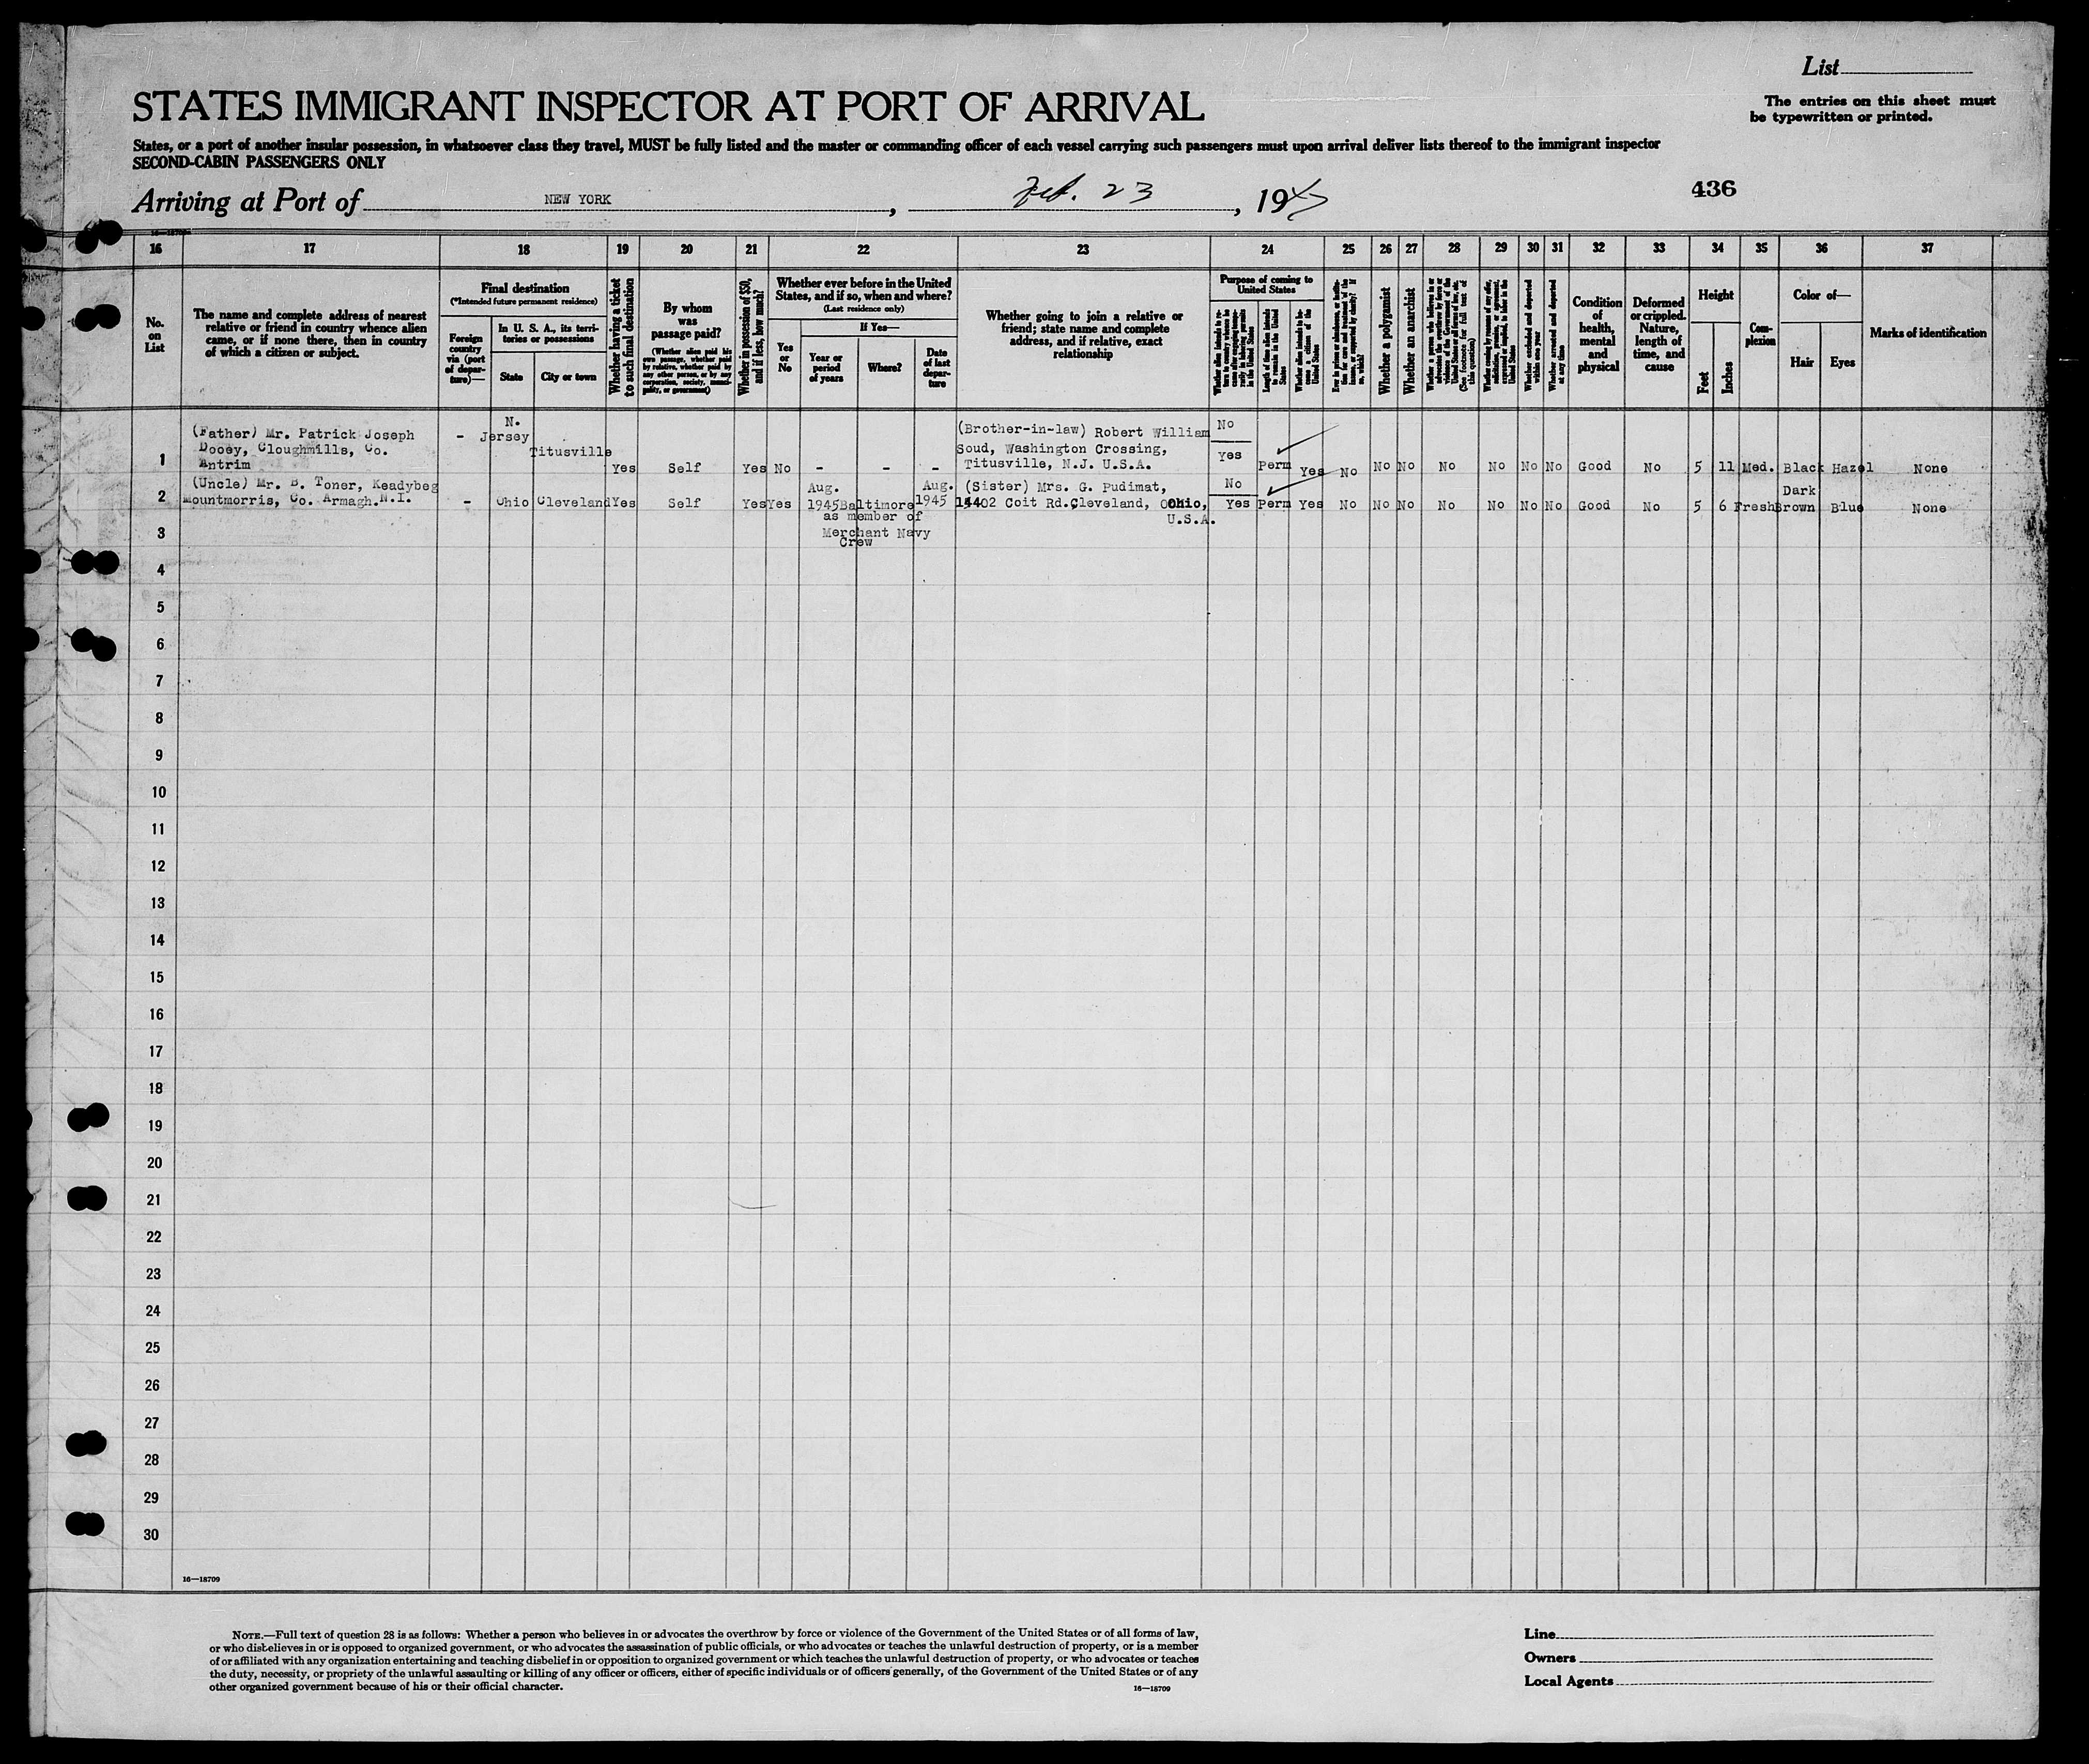 List
STATES IMMIGRANT INSPECTOR AT PORT OF ARRIVAL
The entries on this sheet must
be typewritten or printed.
States, or a port of another insular possession, in whatsoever class they travel, MUST be fully listed and the master or commanding officer of each vessel carrying such passengers must upon arrival deliver lists thereof to the immigrant inspector
SECOND-CABIN PASSENGERS ONLY
Arriving at Port of NEW YORK, Feb. 23, 1947
436
16—18709
16 17 18 19 20 21 22 23 24 25 26 27 28 29 30 31 32 33 34 35 36 37
No.
on
List
The name and complete address of nearest
relative or friend in country whence alien
came, or if none there, then in country
of which a citizen or subject.
Final destination
(*Intended future permanent residence)
Foreign
country
via (port
of depar-
ture)—
In U. S. A., its terri-
tories or possessions
State
City or town
Whether having a ticket
to such final destination
By whom
was
passage paid?
(Whether alien paid his
own passage, whether paid
by relative, whether paid by
any other person, or by any
corporation, society, munici-
pality, or government)
Whether in possession of $50,
and if less, how much?
Whether ever before in the United
States, and if so, when and where?
(Last residence only)
Yes
or
No
If Yes—
Year or
period
of years
Where?
Date
of last
depar-
ture
Whether going to join a relative or
friend; state name and complete
address, and if relative, exact
relationship
Purpose of coming to
United States
Length of time alien intends
to remain in the United
States
Whether alien intends to be-
come a citizen of the
United States
Whether a polygamist
Whether an anarchist
Whether excluded and deported
within one year
Whether arrested and deported
at any time
Condition
of
health,
mental
and
physical
Deformed
or crippled.
Nature,
length of
time, and
cause
Height
Feet
Inches
Com-
plexion
Color of—
Hair
Eyes
Marks of identification
1 (Father) Mr. Patrick Joseph
Dooey, Cloughmills, Co.
Antrim
- N.
Jersey
Titusville
Yes Self Yes No - - -
(Brother-in-law) Robert William
Soud, Washington Crossing,
Titusville, N.J. U.S.A.
No
Yes
Perm Yes No No No No No No No Good No 5 11 Med. Black Hazel None
2 (Uncle) Mr. B. Toner, Keadybeg
Mountmorris, Co. Armagh.N.I.
- Ohio Cleveland Yes Self Yes Yes
Aug.
1945 Baltimore
as member of
Merchant Navy
Crew
Aug.
1945
(Sister) Mrs. G. Pudimat,
14402 Coit Rd.Cleveland, Ohio,
U.S.A.
No
Yes Perm Yes No No No No No No No Good No 5 6 Fresh Dark
Brown Blue None
3
4
5
6
7
8
9
10
11
12
13
14
15
16
17
18
19
20
21
22
23
24
25
26
27
28
29
30
16—18709
NOTE.—Full text of question 28 is as follows: Whether a person who believes in or advocates the overthrow by force or violence of the Government of the United States or of all forms of law,
or who disbelieves in or is opposed to organized government, or who advocates the assassination of public officials, or who advocates or teaches the unlawful destruction of property, or is a member
of or affiliated with any organization entertaining and teaching disbelief in or opposition to organized government or which teaches the unlawful destruction of property, or who advocates or teaches
the duty, necessity, or propriety of the unlawful assaulting or killing of any officer or officers, either of specific individuals or of officers generally, of the Government of the United States or of any
other organized government because of his or their official character.
16—18709
Line
Owners
Local Agents